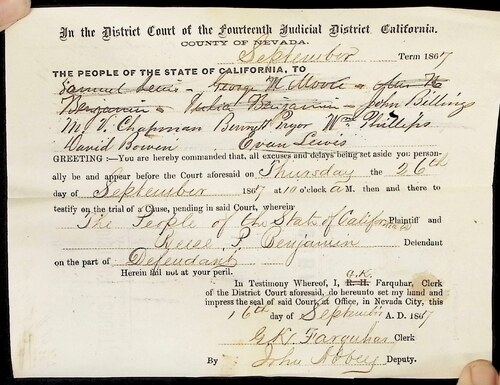 In the District Court of the Fourteenth Judicial District, California.
COUNTY OF NEVADA.
September Term 1867
THE PEOPLE OF THE STATE OF CALIFORNIA, TO
Samuel Lewis - George M Moore -
Benjamin - Benjamin - John Billings
M. V. Chapman Bennett Pryor Wm Phillips
David Bowen Evan Lewis
GREETING :-You are hereby commanded that, all excuses and delays being set aside you person-
ally be and appear before the Court aforesaid on Thursday the 26th
day of September 1867 at 10 o'clock A M. then and there to
testify on the trial of a Cause, pending in said Court, wherein
The People of the State of California Plaintiff and
Reese P. Benjamin Defendant
on the part of Defendant
Herein fail not at your peril.
In Testimony Whereof, I, G.K. R. H. Farquhar, Clerk
of the District Court aforesaid, do hereunto set my hand and
impress the seal of said Court, at Office, in Nevada City, this
16th day of September A. D. 1867
G K Farquhar Clerk
By John Deputy.